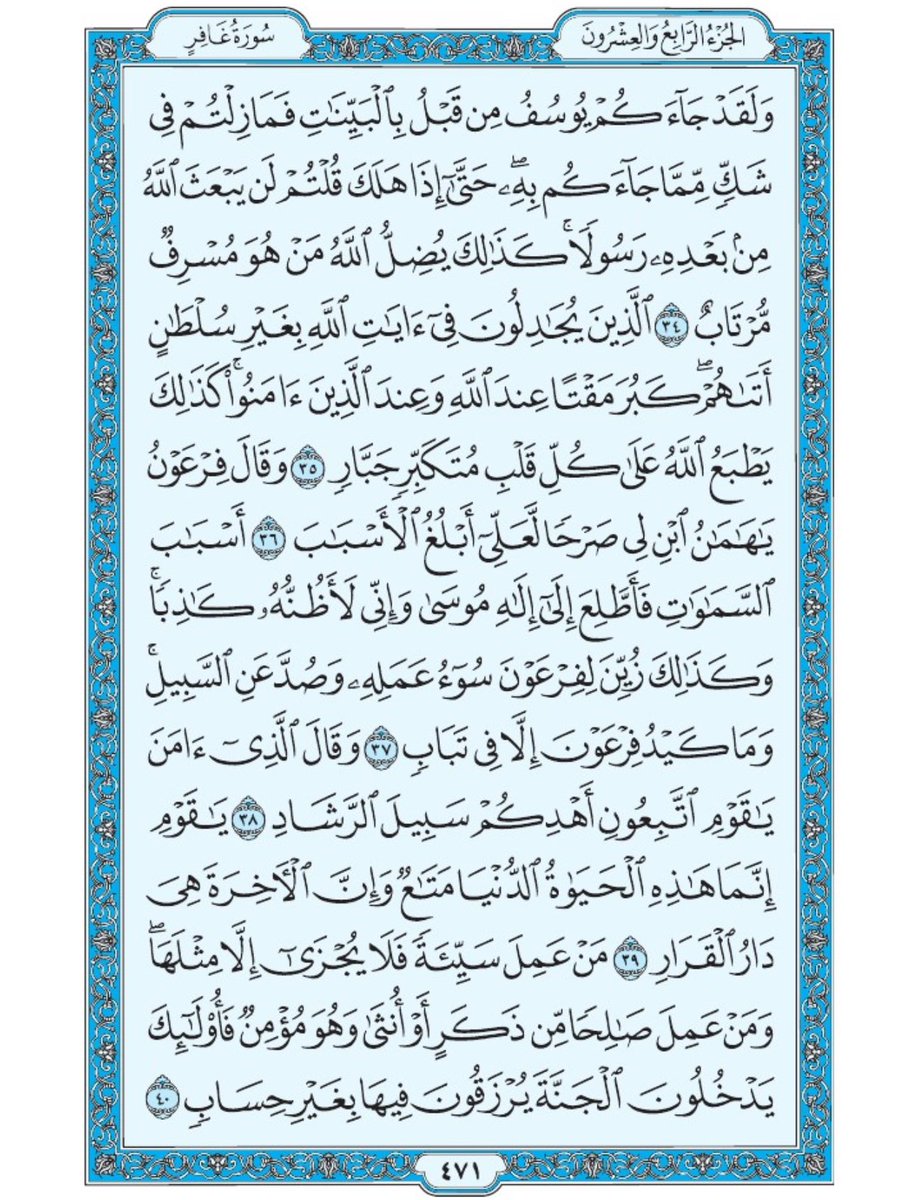 الجُزْءُ الرَّابِعُ وَالعِشْرُونَ
سُورَةُ غَافِرٍ
وَلَقَدْ جَآءَكُمْ يُوسُفُ مِن قَبْلُ بِٱلْبَيِّنَٰتِ فَمَا زِلْتُمْ فِى
شَكٍّ مِّمَّا جَآءَكُم بِهِۦۖ حَتَّىٰٓ إِذَا هَلَكَ قُلْتُمْ لَن يَبْعَثَ ٱللَّهُ
مِنۢ بَعْدِهِۦ رَسُولًاۚ كَذَٰلِكَ يُضِلُّ ٱللَّهُ مَنْ هُوَ مُسْرِفٌ
مُّرْتَابٌ ٣٤ ٱلَّذِينَ يُجَٰدِلُونَ فِىٓ ءَايَٰتِ ٱللَّهِ بِغَيْرِ سُلْطَٰنٍ
أَتَىٰهُمْۖ كَبُرَ مَقْتًا عِندَ ٱللَّهِ وَعِندَ ٱلَّذِينَ ءَامَنُوا۟ۚ كَذَٰلِكَ
يَطْبَعُ ٱللَّهُ عَلَىٰ كُلِّ قَلْبِ مُتَكَبِّرٍ جَبَّارٍ ٣٥ وَقَالَ فِرْعَوْنُ
يَٰهَٰمَٰنُ ٱبْنِ لِى صَرْحًا لَّعَلِّىٓ أَبْلُغُ ٱلْأَسْبَٰبَ ٣٦ أَسْبَٰبَ
ٱلسَّمَٰوَٰتِ فَأَطَّلِعَ إِلَىٰٓ إِلَٰهِ مُوسَىٰ وَإِنِّى لَأَظُنُّهُۥ كَٰذِبًاۚ
وَكَذَٰلِكَ زُيِّنَ لِفِرْعَوْنَ سُوٓءُ عَمَلِهِۦ وَصُدَّ عَنِ ٱلسَّبِيلِۚ
وَمَا كَيْدُ فِرْعَوْنَ إِلَّا فِى تَبَابٍ ٣٧ وَقَالَ ٱلَّذِىٓ ءَامَنَ
يَٰقَوْمِ ٱتَّبِعُونِ أَهْدِكُمْ سَبِيلَ ٱلرَّشَادِ ٣٨ يَٰقَوْمِ
إِنَّمَا هَٰذِهِ ٱلْحَيَوٰةُ ٱلدُّنْيَا مَتَٰعٌ وَإِنَّ ٱلْأَخِرَةَ هِىَ
دَارُ ٱلْقَرَارِ ٣٩ مَنْ عَمِلَ سَيِّئَةً فَلَا يُجْزَىٰٓ إِلَّا مِثْلَهَاۖ
وَمَنْ عَمِلَ صَٰلِحًا مِّن ذَكَرٍ أَوْ أُنثَىٰ وَهُوَ مُؤْمِنٌ فَأُو۟لَٰٓئِكَ
يَدْخُلُونَ ٱلْجَنَّةَ يُرْزَقُونَ فِيهَا بِغَيْرِ حِسَابٍ ٤٠
٤٧١